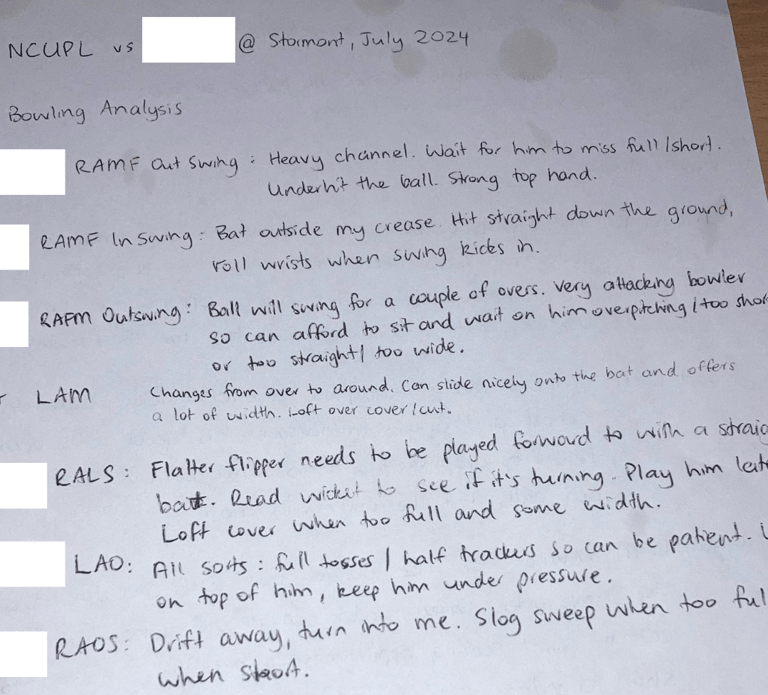 NCUPL vs @ Stormont, July 2024
Bowling Analysis
RAMF Out Swing : Heavy channel. Wait for him to miss full/short.
Underhit the ball. Strong top hand.
RAMF In Swing : Bat outside my crease. Hit straight down the ground,
roll wrists when swing kicks in.
RAFM Outswing : Ball will swing for a couple of overs. Very attacking bowler
so can afford to sit and wait on him overpitching / too
or too straight / too wide.
LAM Changes from over to around. Can slide nicely onto the bat and offers
a lot of width. Loft over cover/cut.
RALS : Flatter flipper needs to be played forward to with a
bat. Read wicket to see if it's turning. Play him
Loft cover when too full and some width.
LAO : All sorts : full tosses / half trackers so can be patient.
on top of him, keep him under pressure.
RAOS : Drift away, turn into me. Slog sweep when too
when short.